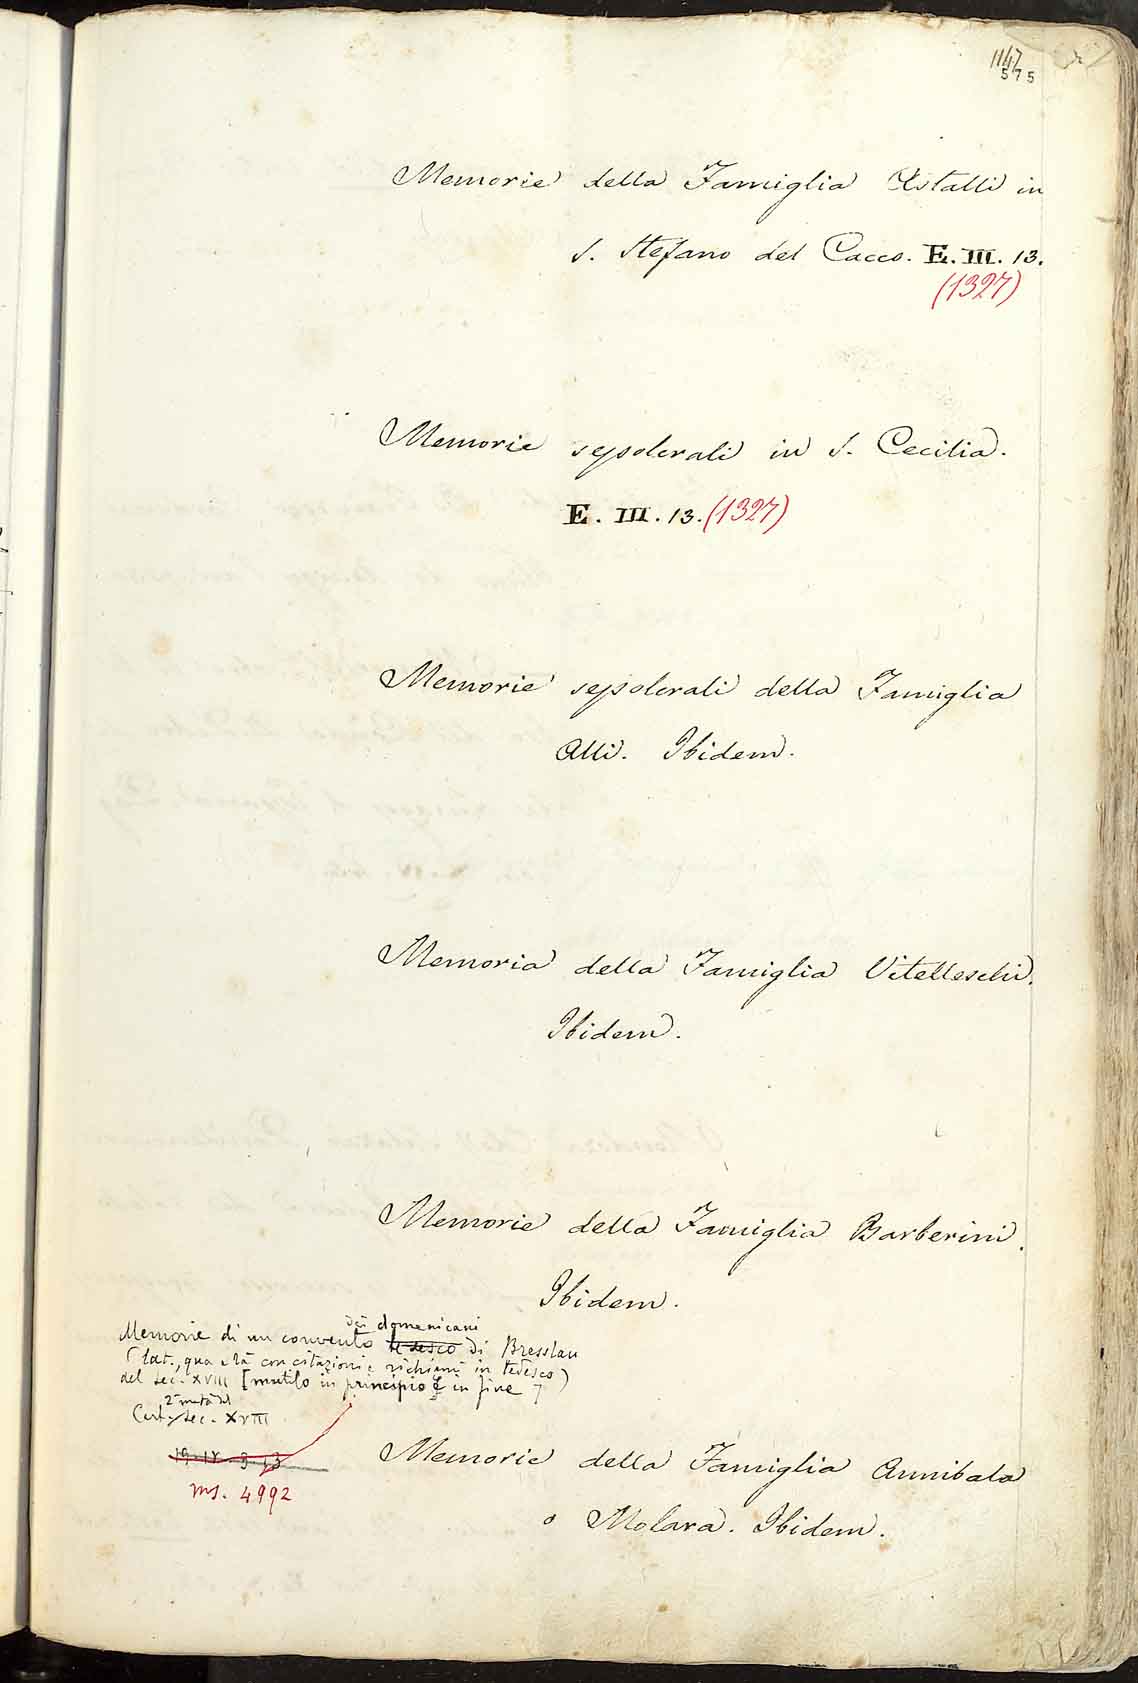 1147
575
Memorie della Famiglia Astalli in
S. Stefano del Cacco. E. III. 13.
(1327)
Memorie sepolcrali in S. Cecilia.
E. III. 13. (1327)
Memorie sepolcrali della Famiglia
Alli. Ibidem.
Memoria della Famiglia Vitelleschi.
Ibidem.
Memorie della Famiglia Barberini.
Ibidem.
dei domenicani
Memorie di un convento tedesco di Bresslau
(lat., qua e là con citazioni e richiami in tedesco)
del sec. XVIII [mutilo in principio e in fine]
2ª metà del
Cart. sec. XVIII
ms. 4992
Memorie della Famiglia Annibala
o Molara. Ibidem.